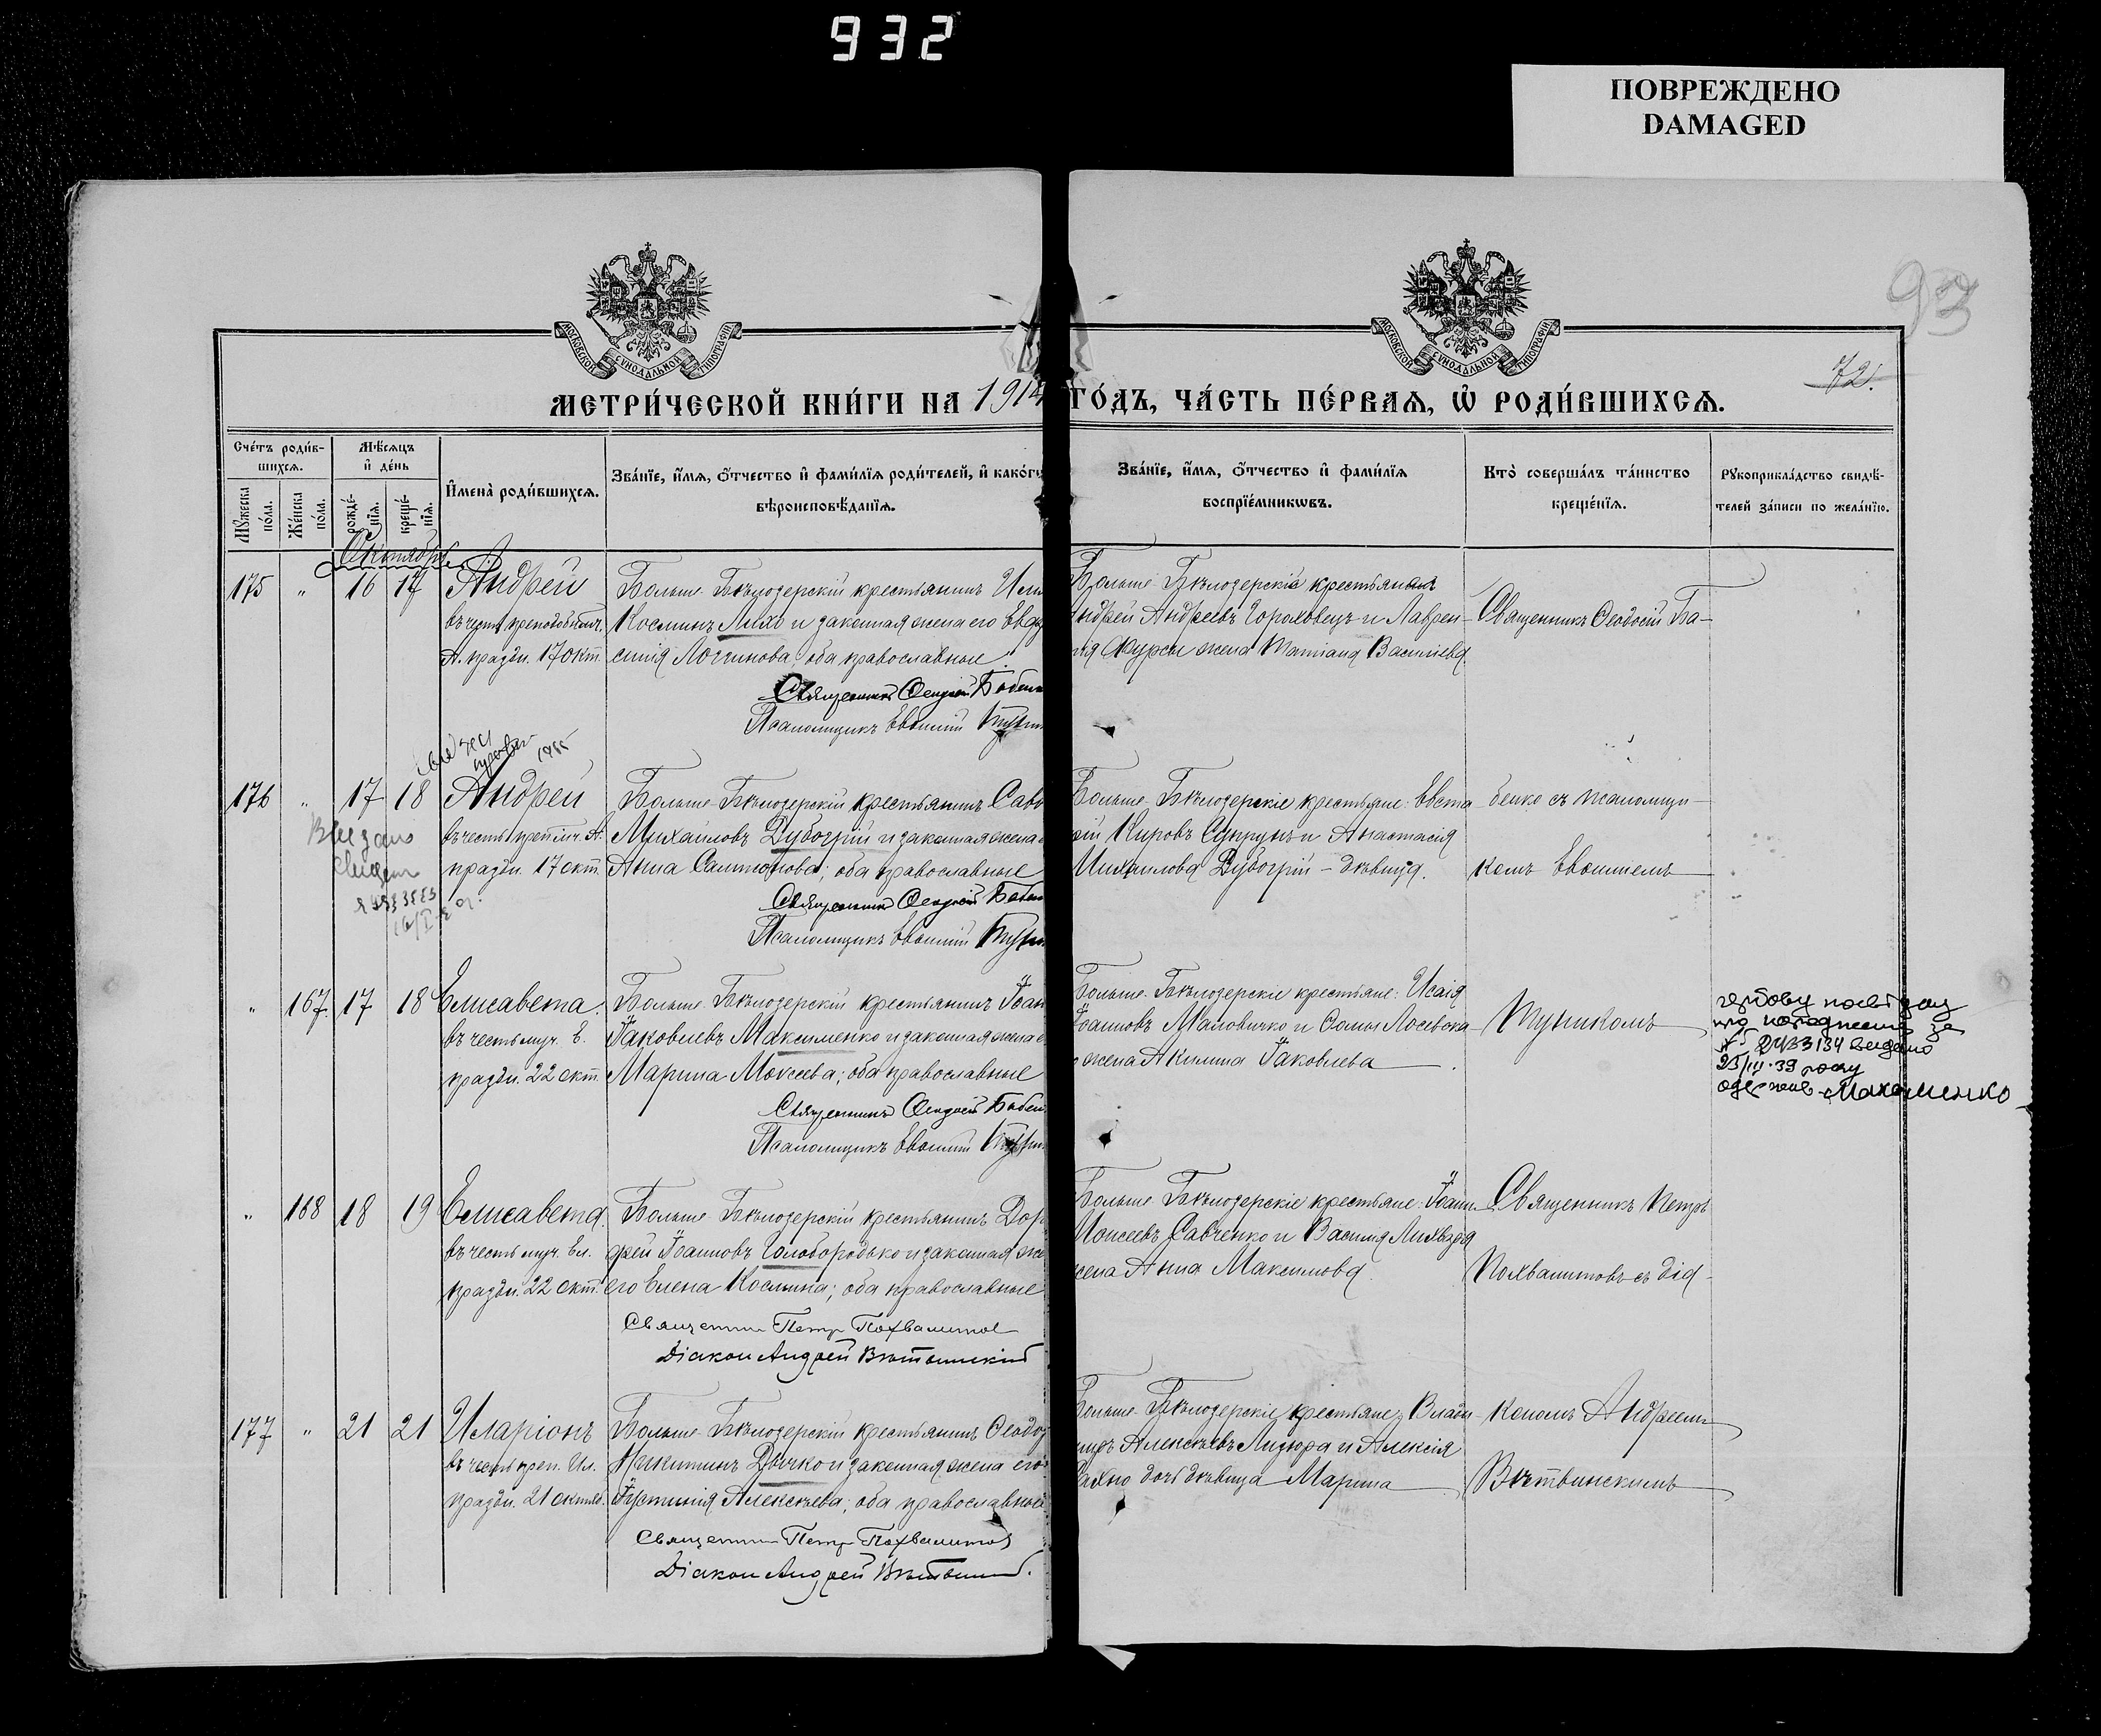 932
ПОВРЕЖДЕНО
DAMAGED
93
72.
МОСКОВСКОЙ СѴНОДАЛЬНОЙ ТИПОГРАФІИ
МОСКОВСКОЙ СѴНОДАЛЬНОЙ ТИПОГРАФІИ
МЕТРИ́ЧЕСКОЙ КНИ́ГИ НА 1914 ГО́ДЪ, ЧА́СТЬ ПЕ́РВАѦ, Ѡ҆ РОДИ́ВШИХСѦ.
Сче́тъ роди́в-
шихсѧ.
Мѣ́сѧцъ
и҆ де́нь
Мꙋжеска
по́ла.
Же́нска
по́ла.
рожде́-
нїѧ.
креще́-
нїѧ.
И҆мена̀ роди́вшихсѧ.
Зва́нїе, и҆́мѧ, ѻ҆́тчество и҆ фами́лїѧ роди́телей, и҆ како́гѡ
вѣроисповѣ́данїѧ.
Зва́нїе, и҆́мѧ, ѻ҆́тчество и҆ фами́лїѧ
воспрїе́мникѡвъ.
Кто̀ соверша́лъ та́инство
креще́нїѧ.
Рꙋкоприкла́дство свидѣ́-
телей за́писи по жела́нїю.
Октябрь
175 " 16 17 Андрей
въ честь преподобномч.
А. праздн. 17 окт.
Больше-Бѣлозерскій крестьянинъ
Косминъ Лихо и законная жена его Евдо
синія Логгинова; оба православные.
Священникъ Ѳеодосій Бабен
Псаломщикъ Евѳимій
Больше-Бѣлозерскіе крестьяне
Андрей Андреевъ Гороховецъ и Лаврен-
тія жена Татіана Васильева.
Священникъ Ѳеодосій Ба-
1955
176 " 17 18 Андрей
въ честь преп. мч. А.
праздн. 17 окт.
Видано
16/I
Больше-Бѣлозерскій крестьянинъ Савв
Михаиловъ Дубогрій и законная жена е
Анна Самсонова; оба православные
Священникъ Ѳеодосій Бабен
Псаломщикъ Евѳимій
Больше-Бѣлозерскіе крестьяне: Евста
ѳій Кировъ Супрунъ и Анастасія
Михаилова Дубогрій – дѣвица.
бенко съ псаломщи-
комъ Евѳиміемъ
" 167. 17 18 Елисавета.
въ честь муч. Е.
праздн. 22 окт.
Больше-Бѣлозерскій крестьянинъ Іоан
Іаковлевъ Максименко и законная жена е
Марина Моисеева; оба православные
Священникъ Ѳеодосій Бабен
Псаломщикъ Евѳимій
Больше-Бѣлозерскіе крестьяне: Исаія
Іоанновъ и Ѳомы
жена Акилина Іаковлева.
Тупикомъ
за
№ 2433134 видано
25/III-39 року
одержав
" 168 18 19 Елисавета.
въ честь муч. Ел.
праздн. 22 окт.
Больше-Бѣлозерскій крестьянинъ Дор
ѳей Іоанновъ Голобородько и законная же
его Елена Космина; оба православные
Священник Петр Похвалитов
Діакон Андрей Вѣтвинскій
Больше-Бѣлозерскіе крестьяне: Іоанн
Моисеевъ Савченко и Василія Лихваря
жена Анна Максимова.
Священникъ Петръ
Похвалитовъ съ діа-
177 " 21 21 Иларіонъ
въ честь преп. Ил.
праздн. 21 октяб.
Больше-Бѣлозерскій крестьянинъ Ѳеодор
Никитинъ Дѣчко и законная жена его
Іустинія Алексѣева; оба православные
Священник Петр Похвалитов
Діакон Андрей Вѣтвинскій.
Больше-Бѣлозерскіе крестьяне: Влади
миръ Алексѣевъ и Алексія
дочь дѣвица Марина
кономъ Андреемъ
Вѣтвинскимъ